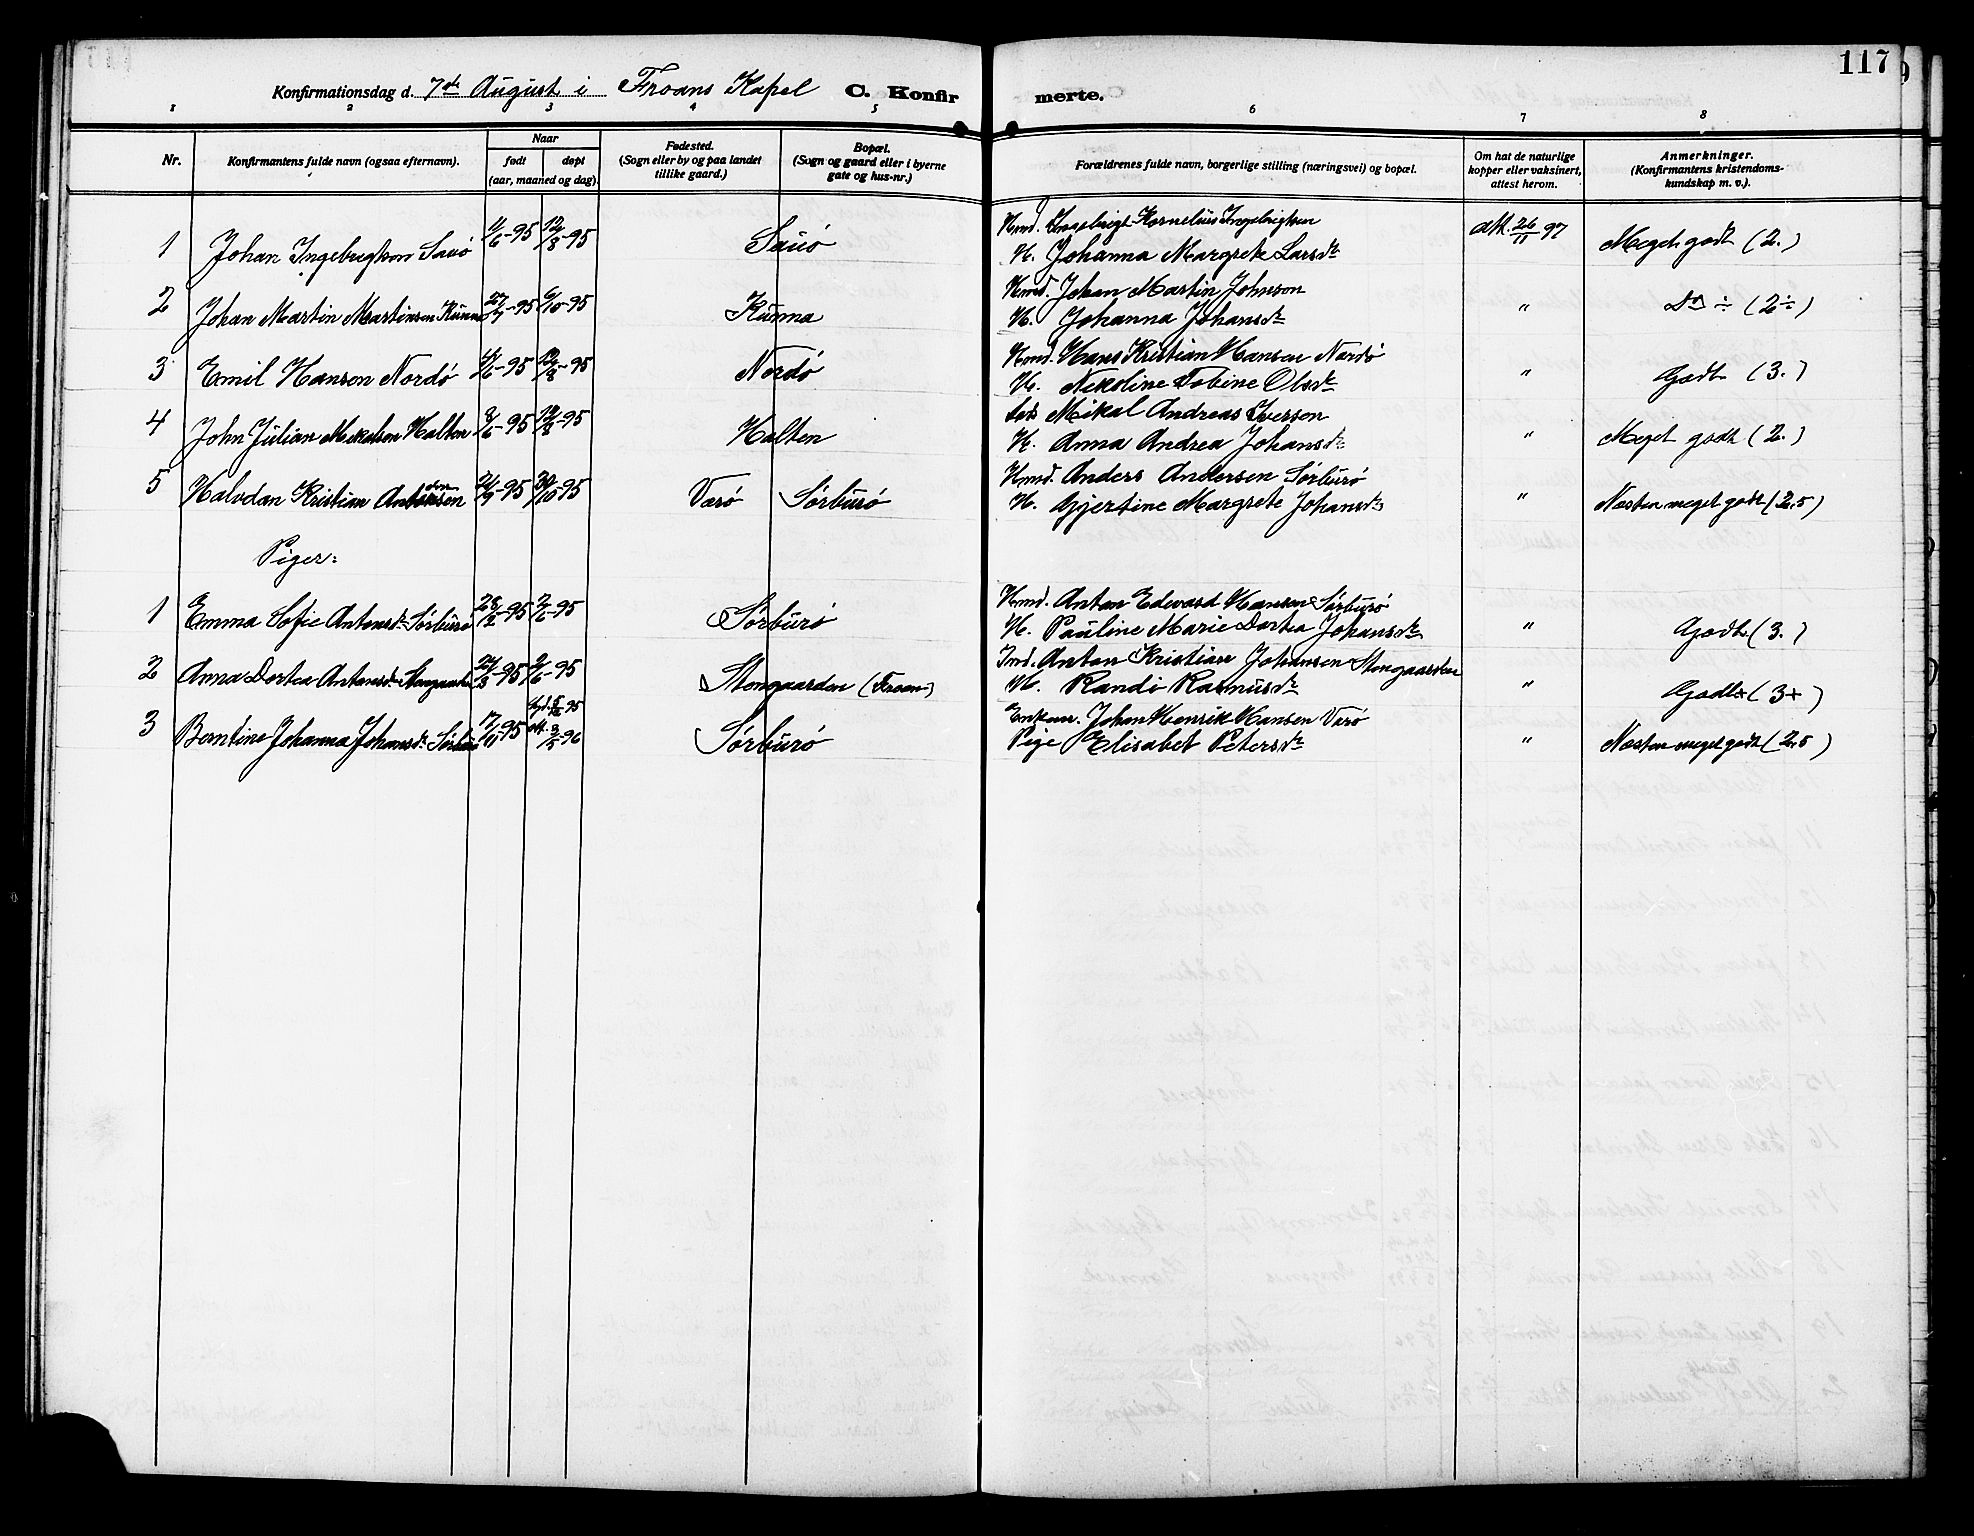 117
Konfirmationsdag d. 7de August i Froans Kapel C. Konfirmerte.
1 2 3 4 5 6 7 8
Nr. Konfirmantens fulde navn (ogsaa efternavn). Naar født døpt (aar, maaned og dag). Fødested. (Sogn eller by og paa landet tillike gaard.) Bopæl. (Sogn og gaard eller i byerne gate og hus-nr.) Forældrenes fulde navn, borgerlige stilling (næringsvei) og bopæl. Om hat de naturlige kopper eller vaksinert, attest herom. Anmerkninger. (Konfirmantens kristendomskundskap m. v.).
1 Johan Ingebrigtson Sauö 4/6-95 12/8-95 Sauö Kmd. Ingebrigt Kornelius Ingebrigtsen att. 26/11 97 Meget godt (2.)
H. Johanna Margrete Larsdr
2 Johan Martin Martinsen Kunna 27/7-95 6/10-95 Kunna Kmd. Johan Martin Johnson " Do ÷ (2÷)
H. Johanna Johansdr
3 Emil Hansen Nordö 4/6-95 12/8-95 Nordö Kmd. Hans Kristian Hansen Nordö " Godt (3.)
H. Nekoline Tobine Olsdr
4 John Julian Mekelsen Halten 8/6-95 12/8-95 Halten Mikal Andreas Iverson " Meget godt (2.)
H. Anna Andrea Johansdr
5 Halvdan Kristian 24/9-95 30/10-95 Varö Sörburö Kmd. Anders Andersen Sörburö " Næsten meget godt (2.5)
H. Gjertine Margrete Johansdr
Piger:
1 Emma Sofie Antonsdr Sörburö 28/2-95 2/6-95 Sörburö Kmd. Anton Edevard Hansen Sörburö " Godt (3.)
H. Pauline Marie Dortea Johansdr
2 Anna Dortea Antonsdr Stengaarden 24/3-95 2/6-95 Stengaarden (Froan) Ind. Anton Kristian Johansen Stengaarden " Godt+ (3+)
H. Randi Rasmusdr
3 Berntine Johanna Johansdr Sörburö 17/11-95 3/5-96 Sörburö Enkem. Johan Henrik Hansen Varö " Næsten meget godt (2.5)
Pige Elisabet Petersdr